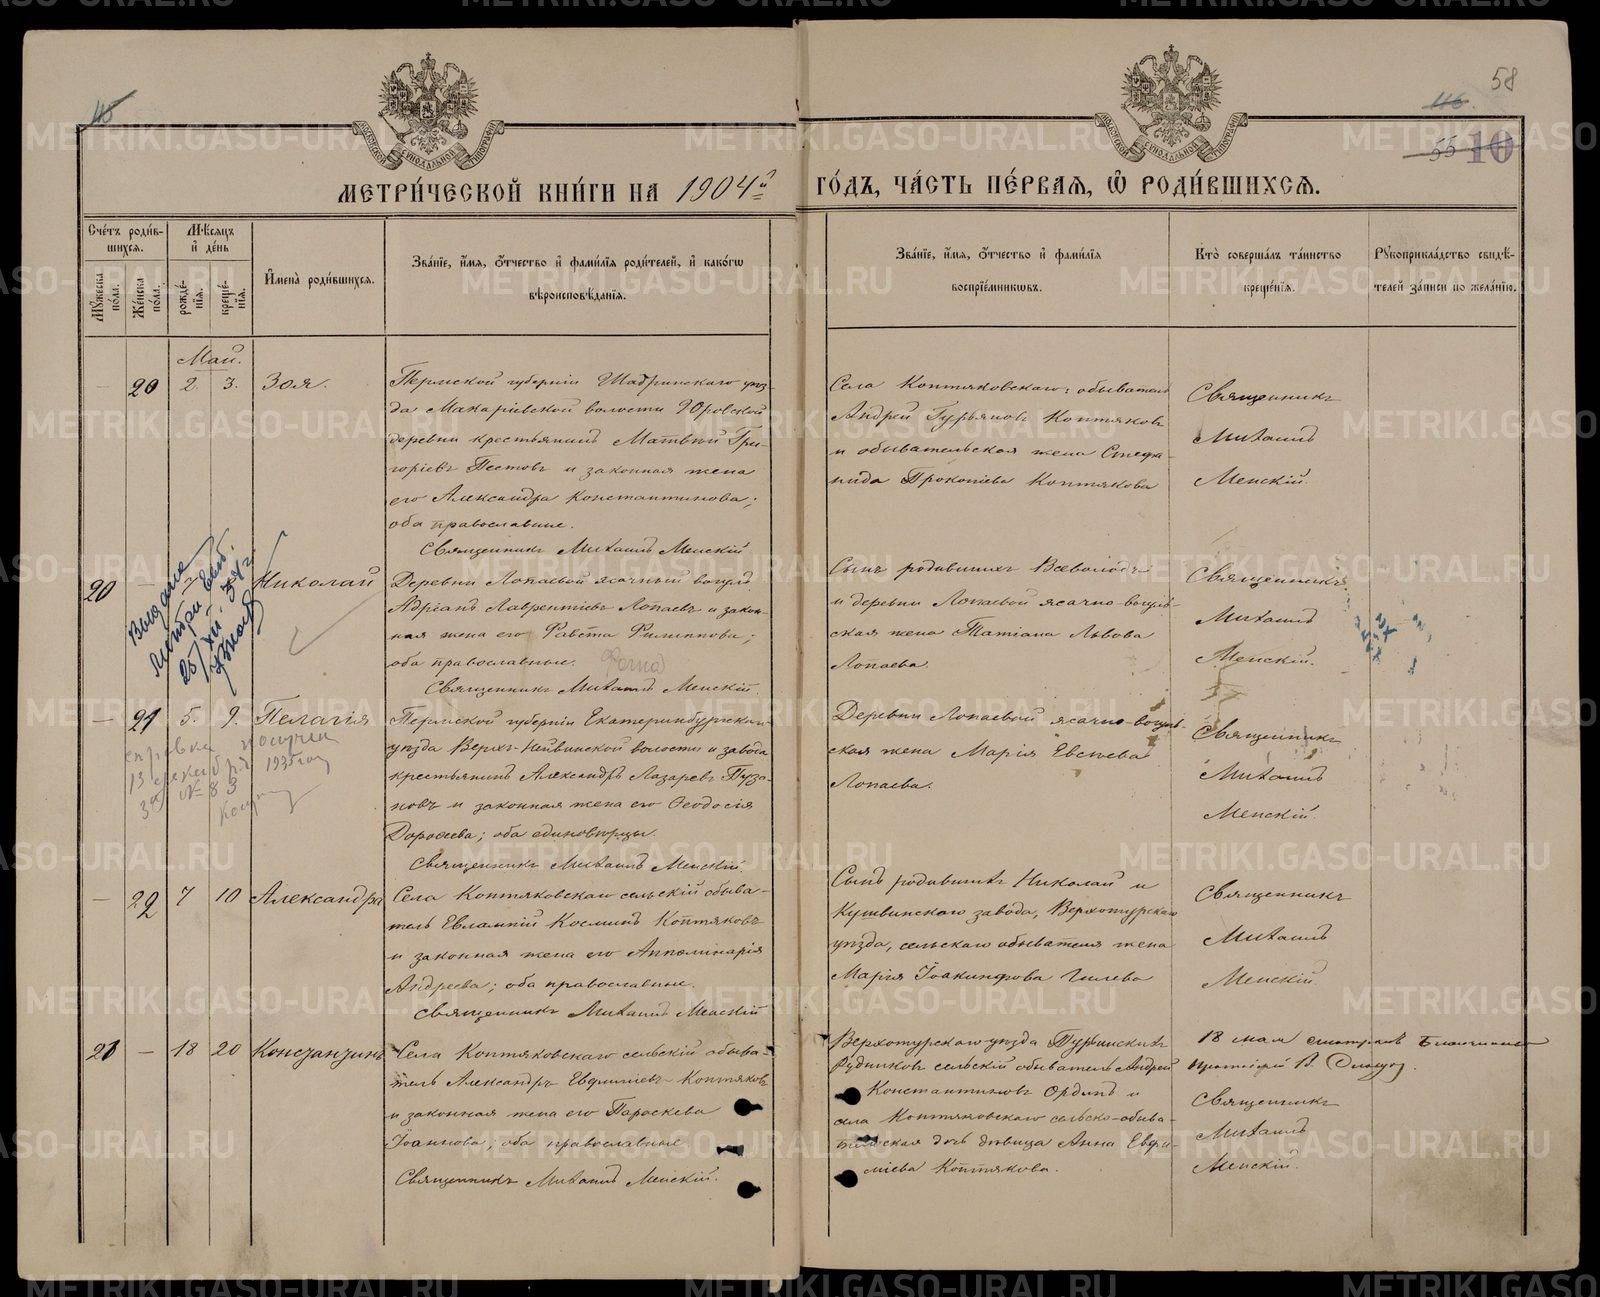 58
115
116.
55 10
МЕТРИ́ЧЕСКОЙ КНИ́ГИ НА 1904й ГО́ДЪ, ЧА́СТЬ ПЕ́РВАЯ, Ѡ РОДИ́ВШИХСЯ.
Сче́тъ роди́вшихся.
Мꙋ́жеска по́ла.
Же́нска по́ла.
Мѣ́сяцъ и҆ де́нь
рожде́нїя.
креще́нїя.
И҆мена̀ роди́вшихся.
Зва́нїе, и҆́мя, ѻ҆́тчество и҆ фами́лїя роди́телей, и҆ како́гѡ вѣроисповѣ́данїя.
Зва́нїе, и҆́мя, ѻ҆́тчество и҆ фами́лїя воспрїе́мникѡвъ.
Кто̀ соверша́лъ та́инство креще́нїя.
Рꙋкоприкла́дство свидѣ́телей за́писи по жела́нїю.
Май.
— 20 2. 3. Зоя.
Пермской губернiи Шадринскаго уѣз-
да Макарiевской волости Юровской
деревни крестьянинъ Матвѣй Гри-
горiевъ Пестовъ и законная жена
его Александра Константинова;
оба православные.
Священникъ Михаилъ Менскiй
Села Коптяковскаго: обыватель
Андрей Гурьяновъ Коптяковъ
и обывательская жена Стефа-
нида Прокопiева Коптякова
Священникъ
Михаилъ
Менскiй.
20 — Николай
Деревни Лопаевой ясачный вогулъ
Адрiанъ Лаврентiевъ Лопаевъ и закон-
ная жена его Фавста Филиппова;
оба православные.
Священникъ Михаилъ Менскiй.
Сынъ родившихъ Всеволодъ
и деревни Лопаевой ясачно-вогуль-
ская жена Татiана Львова
Лопаева.
Священникъ
Михаилъ
Менскiй.
Выдана
— 21 5. 9. Пелагiя
справка получен
13 1935 год
№ 83
Пермской губернiи Екатеринбургскаго
уѣзда Верхъ-Нейвинской волости и завода
крестьянинъ Александръ Лазаревъ Пуза-
новъ и законная жена его Ѳеодосiя
Дороѳева; оба единовѣрцы.
Священникъ Михаилъ Менскiй.
Деревни Лопаевой ясачно-вогуль-
ская жена Марiя Евсѣева
Лопаева.
Священникъ
Михаилъ
Менскiй.
— 22 7 10 Александра
Села Коптяковскаго сельскiй обыва-
тель Евлампiй Косминъ Коптяковъ
и законная жена его Апполинарiя
Андреева; оба православные.
Священникъ Михаилъ Менскiй
Сынъ родившихъ Николай и
Кушвинскаго завода, Верхотурскаго
уѣзда, сельскаго обывателя жена
Марiя Iоакинфова Гилева
Священникъ
Михаилъ
Менскiй.
21 — 18 20 Константинъ
Села Коптяковскаго сельскiй обыва-
тель Александръ Евфимiевъ Коптяковъ
и законная жена его Параскева
Iоаннова; оба православные
Священникъ Михаилъ Менскiй.
Верхотурскаго уѣзда Турьинскихъ
Рудниковъ сельскiй обыватель Андрей
Константиновъ Ординъ и
села Коптяковскаго сельско-обыва-
тельская дочь дѣвица Анна Евфи-
мiева Коптякова.
18 мая смотрѣлъ Благочинный
Священникъ
Михаилъ
Менскiй.
METRIKI.GASO-URAL.RU